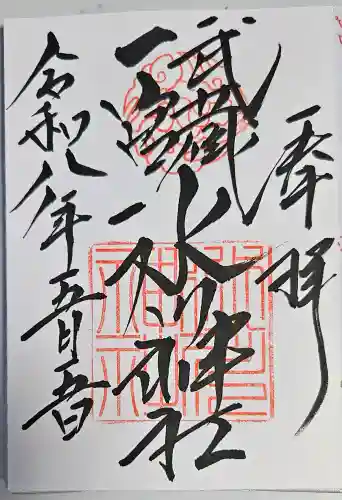 奉拝
武蔵
一宮
氷川神社
令和八年五月五日